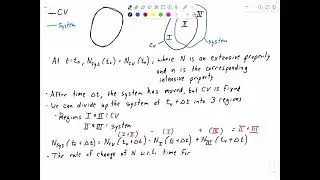 CV
System
I
II
III
CV
system
• At t=t₀, N_sys(t₀) = N_CV(t₀), where N is an extensive property
and n is the corresponding
intensive property
• After time Δt, the system has moved, but CV is fixed
• We can divide up the system at t₀+Δt into 3 regions
- Regions I + II : CV
II + III : system
(I+II) - (I) + (III) = II + III
N_sys(t₀+Δt) = N_CV(t₀+Δt) - N_I(t₀+Δt) + N_III(t₀+Δt)
• The rate of change of N w.r.t. time for